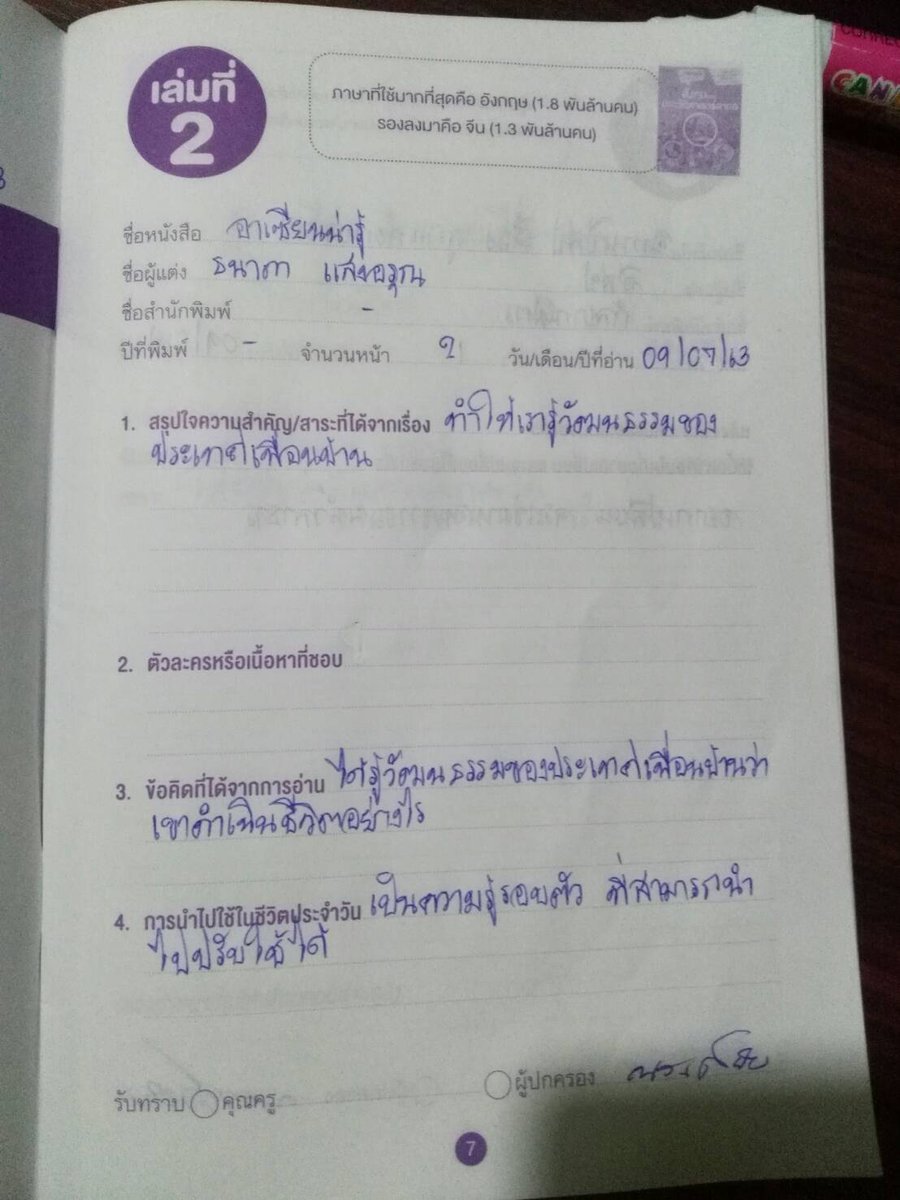 เล่มที่
2
ภาษาที่ใช้มากที่สุดคือ อังกฤษ (1.8 พันล้านคน)
รองลงมาคือ จีน (1.3 พันล้านคน)
ชื่อหนังสือ อาเซียนน่ารู้
ชื่อผู้แต่ง ธนาภา แสงอรุณ
ชื่อสำนักพิมพ์ -
ปีที่พิมพ์ - จำนวนหน้า 2 วัน/เดือน/ปีที่อ่าน 09/07/63
1. สรุปใจความสำคัญ/สาระที่ได้จากเรื่อง ทำให้เรารู้วัฒนธรรมของ
ประเทศเพื่อนบ้าน
2. ตัวละครหรือเนื้อหาที่ชอบ
3. ข้อคิดที่ได้จากการอ่าน ได้รู้วัฒนธรรมของประเทศเพื่อนบ้านว่า
เขาดำเนินชีวิตอย่างไร
4. การนำไปใช้ในชีวิตประจำวัน เป็นความรู้รอบตัว ที่สามารถนำ
ไปปรับใช้ได้
รับทราบ คุณครู ผู้ปกครอง
7